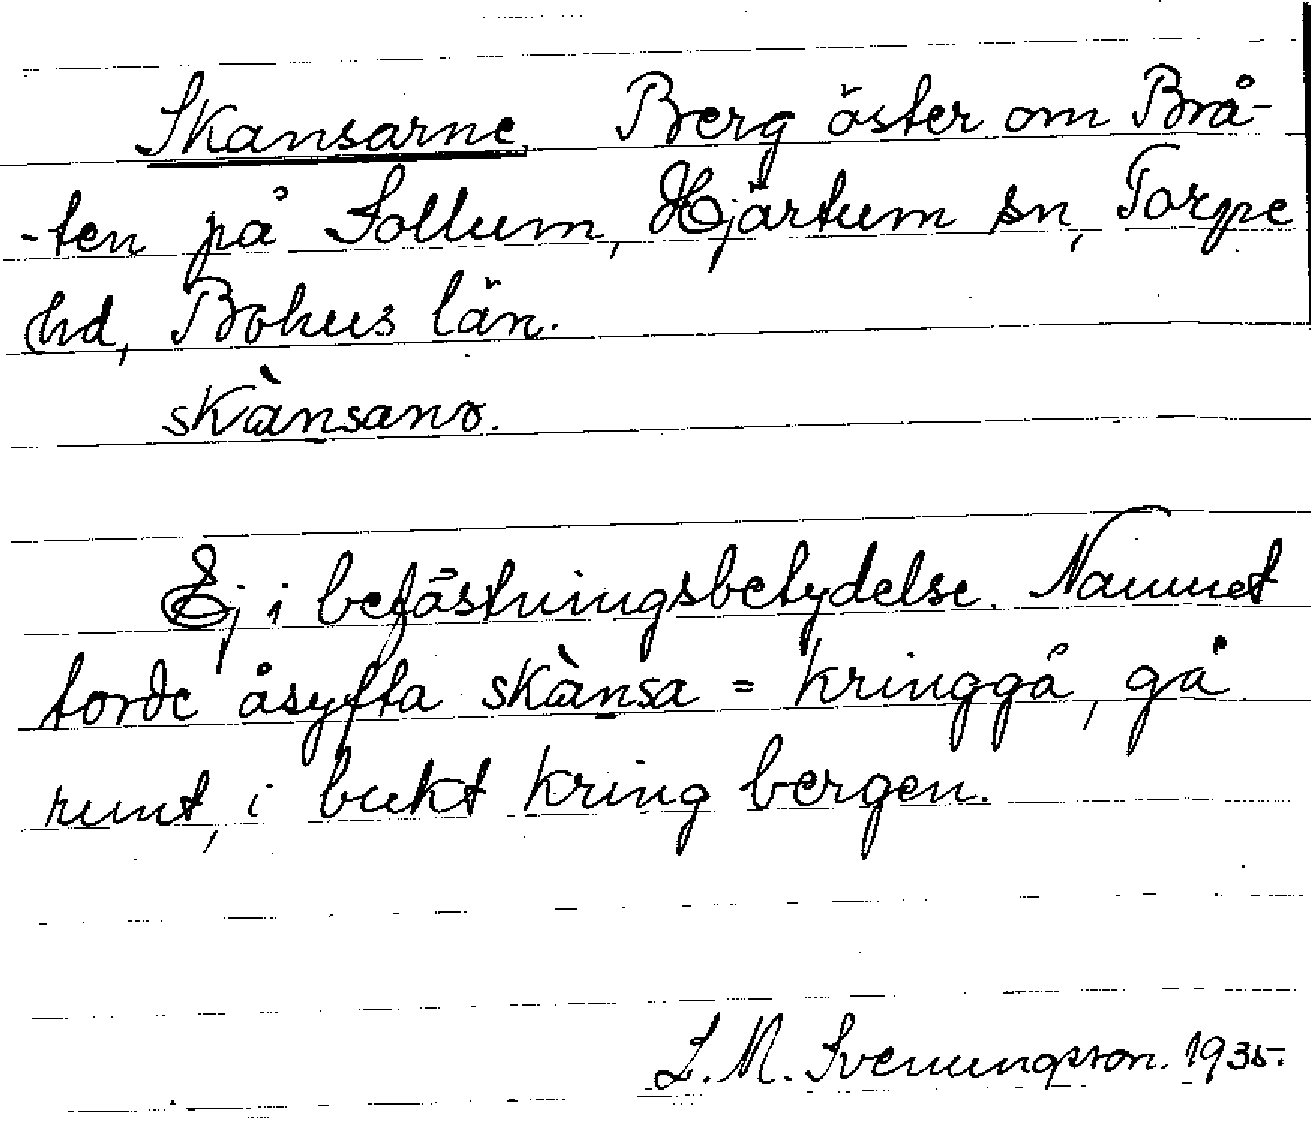 Skansarne Berg öster om Brå-
-ten på Sollum, Hjärtum sn, Torpe
hd, Bohus län.
skànsanɷ.
Ej i befästningsbetydelse. Namnet
torde åsyfta skànsa = kringgå, gå
runt, i bukt kring bergen.
L. M. Svenungsson. 1935.